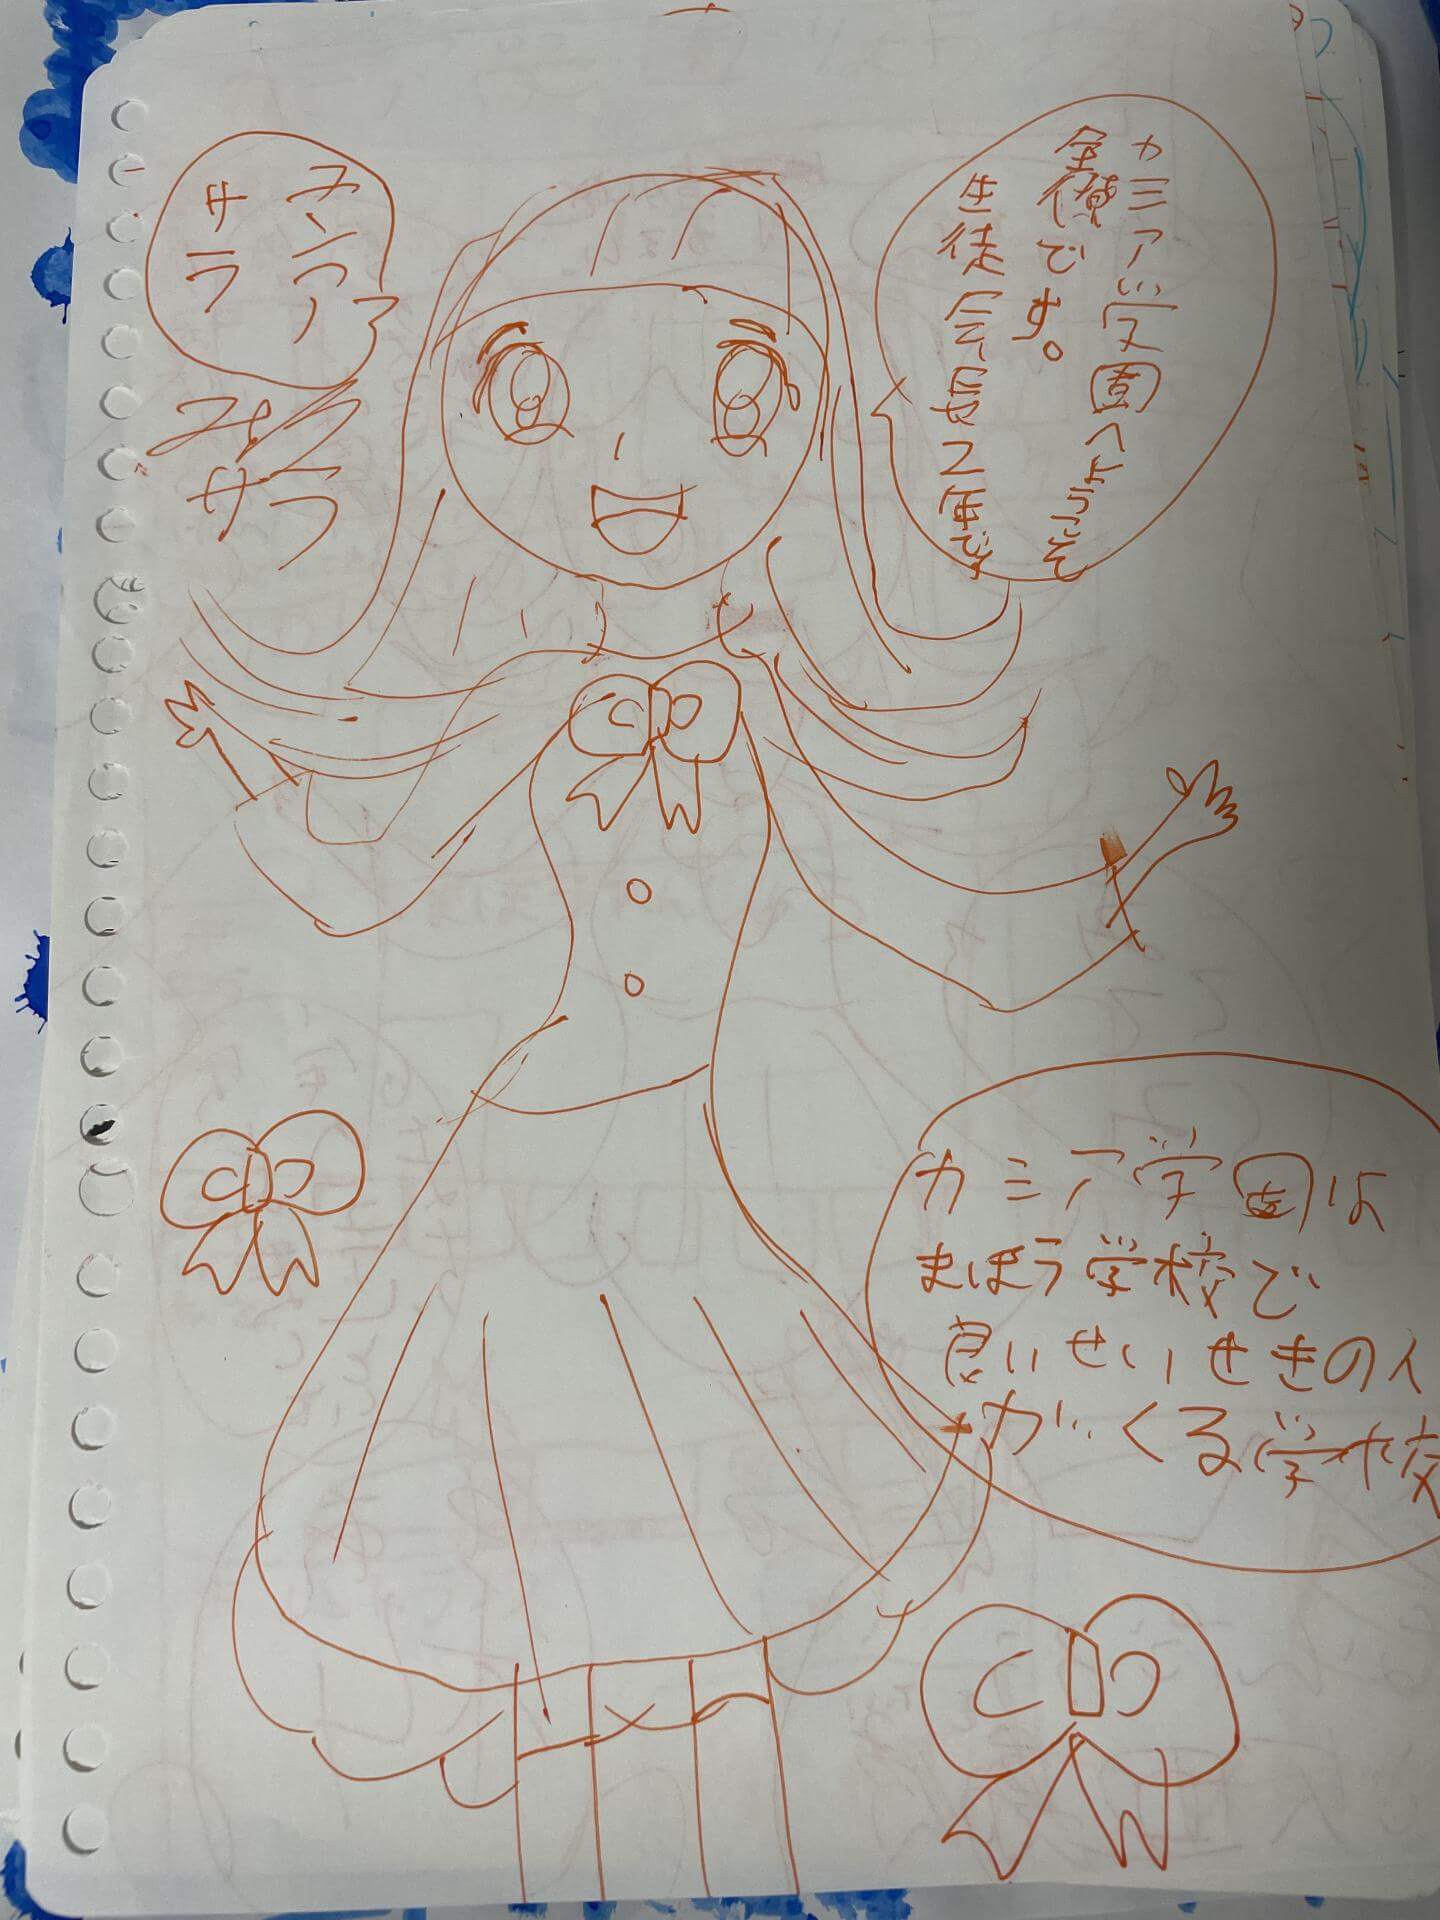 カミア学園へようこそ
生徒会長2年です
サラ
サラ
カミア学園は
まほう学校で
良いせいせきの人
がくる学校